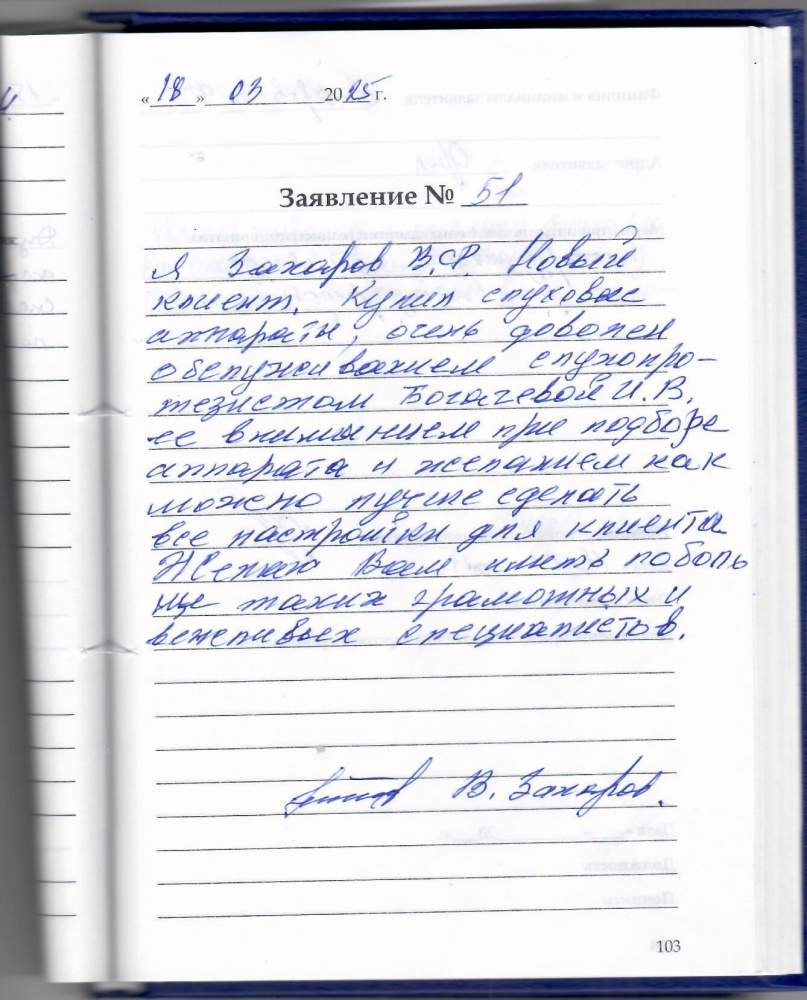 « 18 » 03 2025 г.
Заявление № 51
Я Захаров В.Ф. Новый
клиент. Купил слуховые
аппараты, очень доволен
обслуживанием слухопро-
тезистом Богачевой И.В.
ее вниманием при подборе
аппарата и желанием как
можно лучше сделать
все настройки для клиента
Желаю Вам иметь поболь
ще таких грамотных и
вежливых специалистов.
В. Захаров.
103